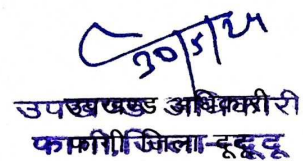 30/5/24
उपखण्ड अधिकारी
फागी जिला-दूदू